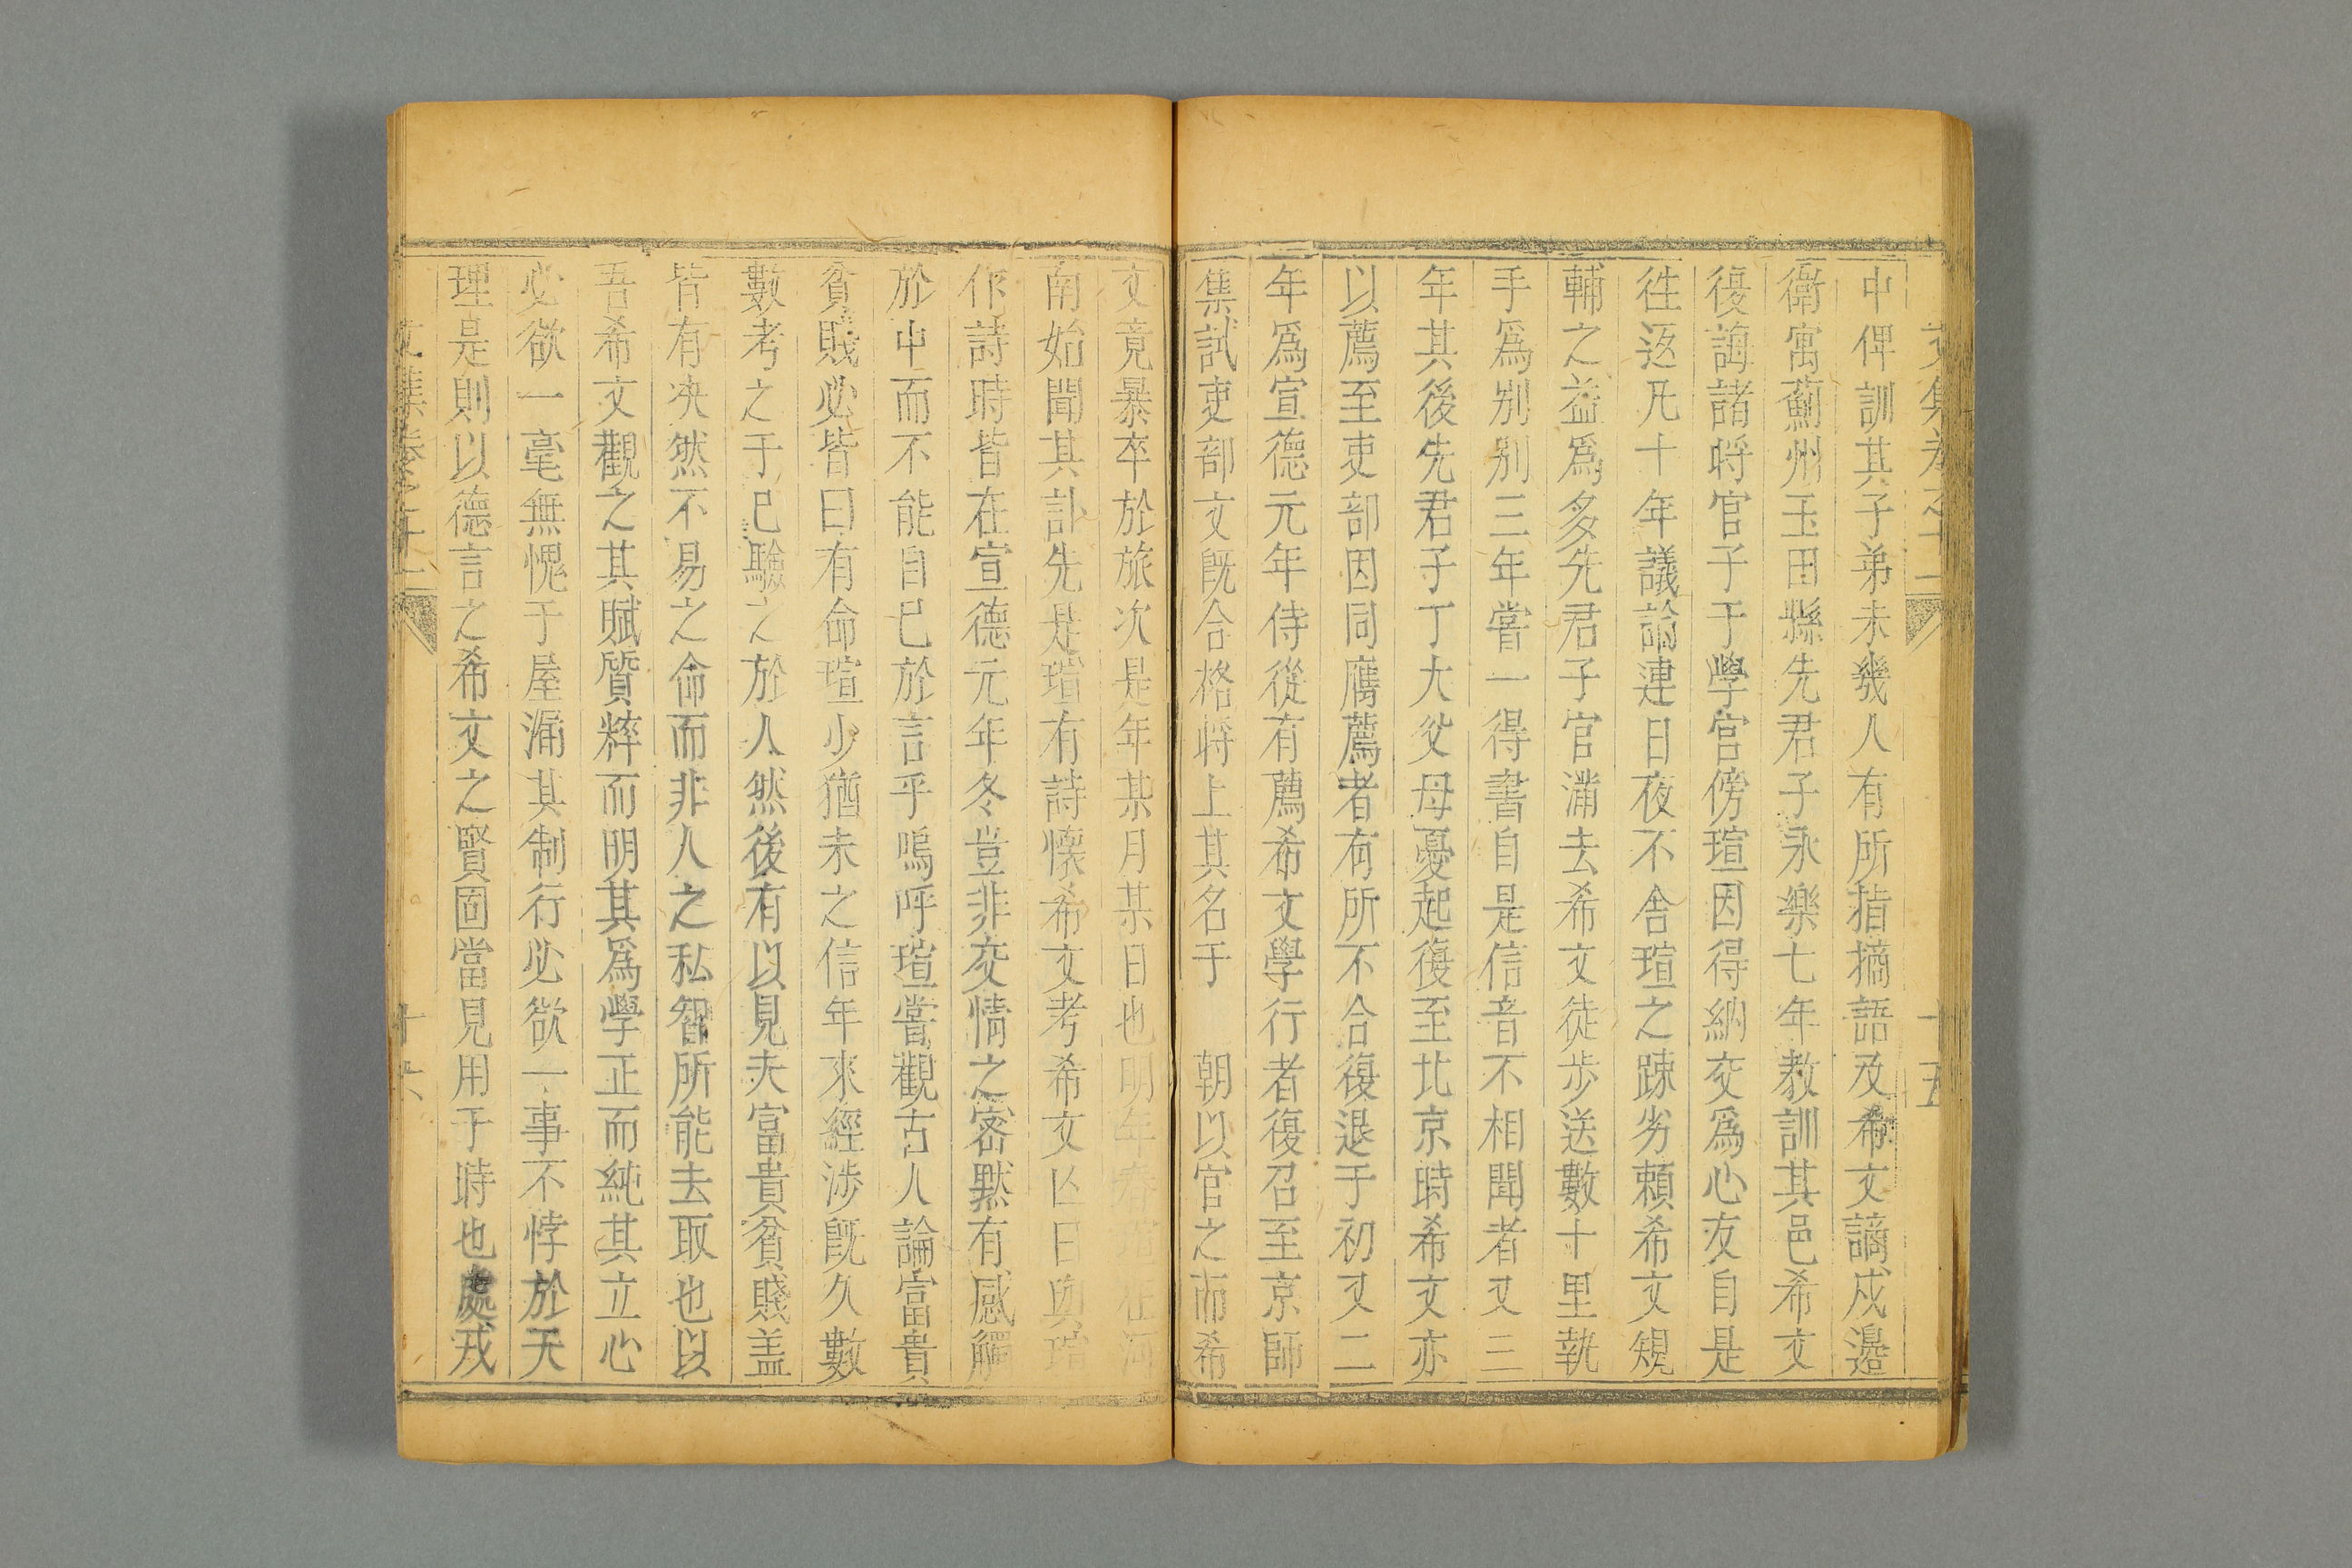 文集卷之十二
十五
中俾訓其子弟未幾人有所指摘語及希文謫戍邊
衛寓薊州玉田縣先君子永樂七年教訓其邑希文
復誨諸將官子于學宮傍瑄因得納交爲心友自是
徃返凡十年議論連日夜不舍瑄之踈劣賴希文規
輔之益爲多先君子官滿去希文徒步送數十里執
手爲别别三年嘗一得書自是信音不相聞者又三
年其後先君子丁大父母憂起復至北京時希文亦
以薦至吏部因同膺薦者有所不合復退于初又二
年爲宣德元年侍從有薦希文學行者復召至京師
集試吏部文旣合格將上其名于 朝以官之而希
文竟暴卒於旅次是年某月某日也明年 瑄在河
南始聞其訃先是瑄有詩懷希文考希文亾日與瑄
作詩時皆在宣德元年冬豈非交情之密默有感觸
於中而不能自已於言乎嗚呼瑄嘗觀古人論富貴
貧賤必皆曰有命瑄少猶未之信年來經涉旣久數
數考之于已驗之於人然後有以見夫富貴貧賤盖
皆有决然不易之命而非人之私智所能去取也以
吾希文觀之其賦質粹而明其爲學正而純其立心
必欲一毫無愧于屋漏其制行必欲一事不悖於天
理是則以德言之希文之賢固當見用于時也處戎
文集卷之十二
十六